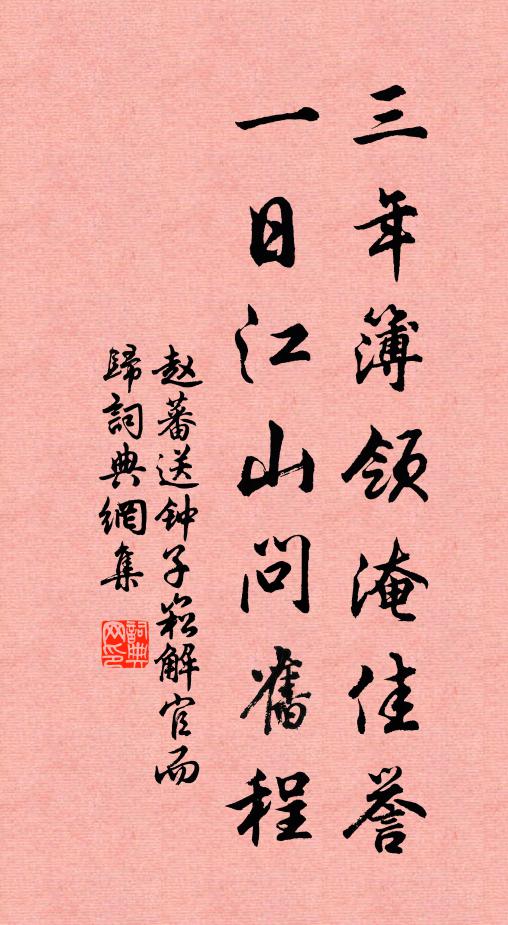 三年簿領淹佳誉
一日江山問舊程
赵蕃送钟子崧解官而
歸詞典網集
詞典网印